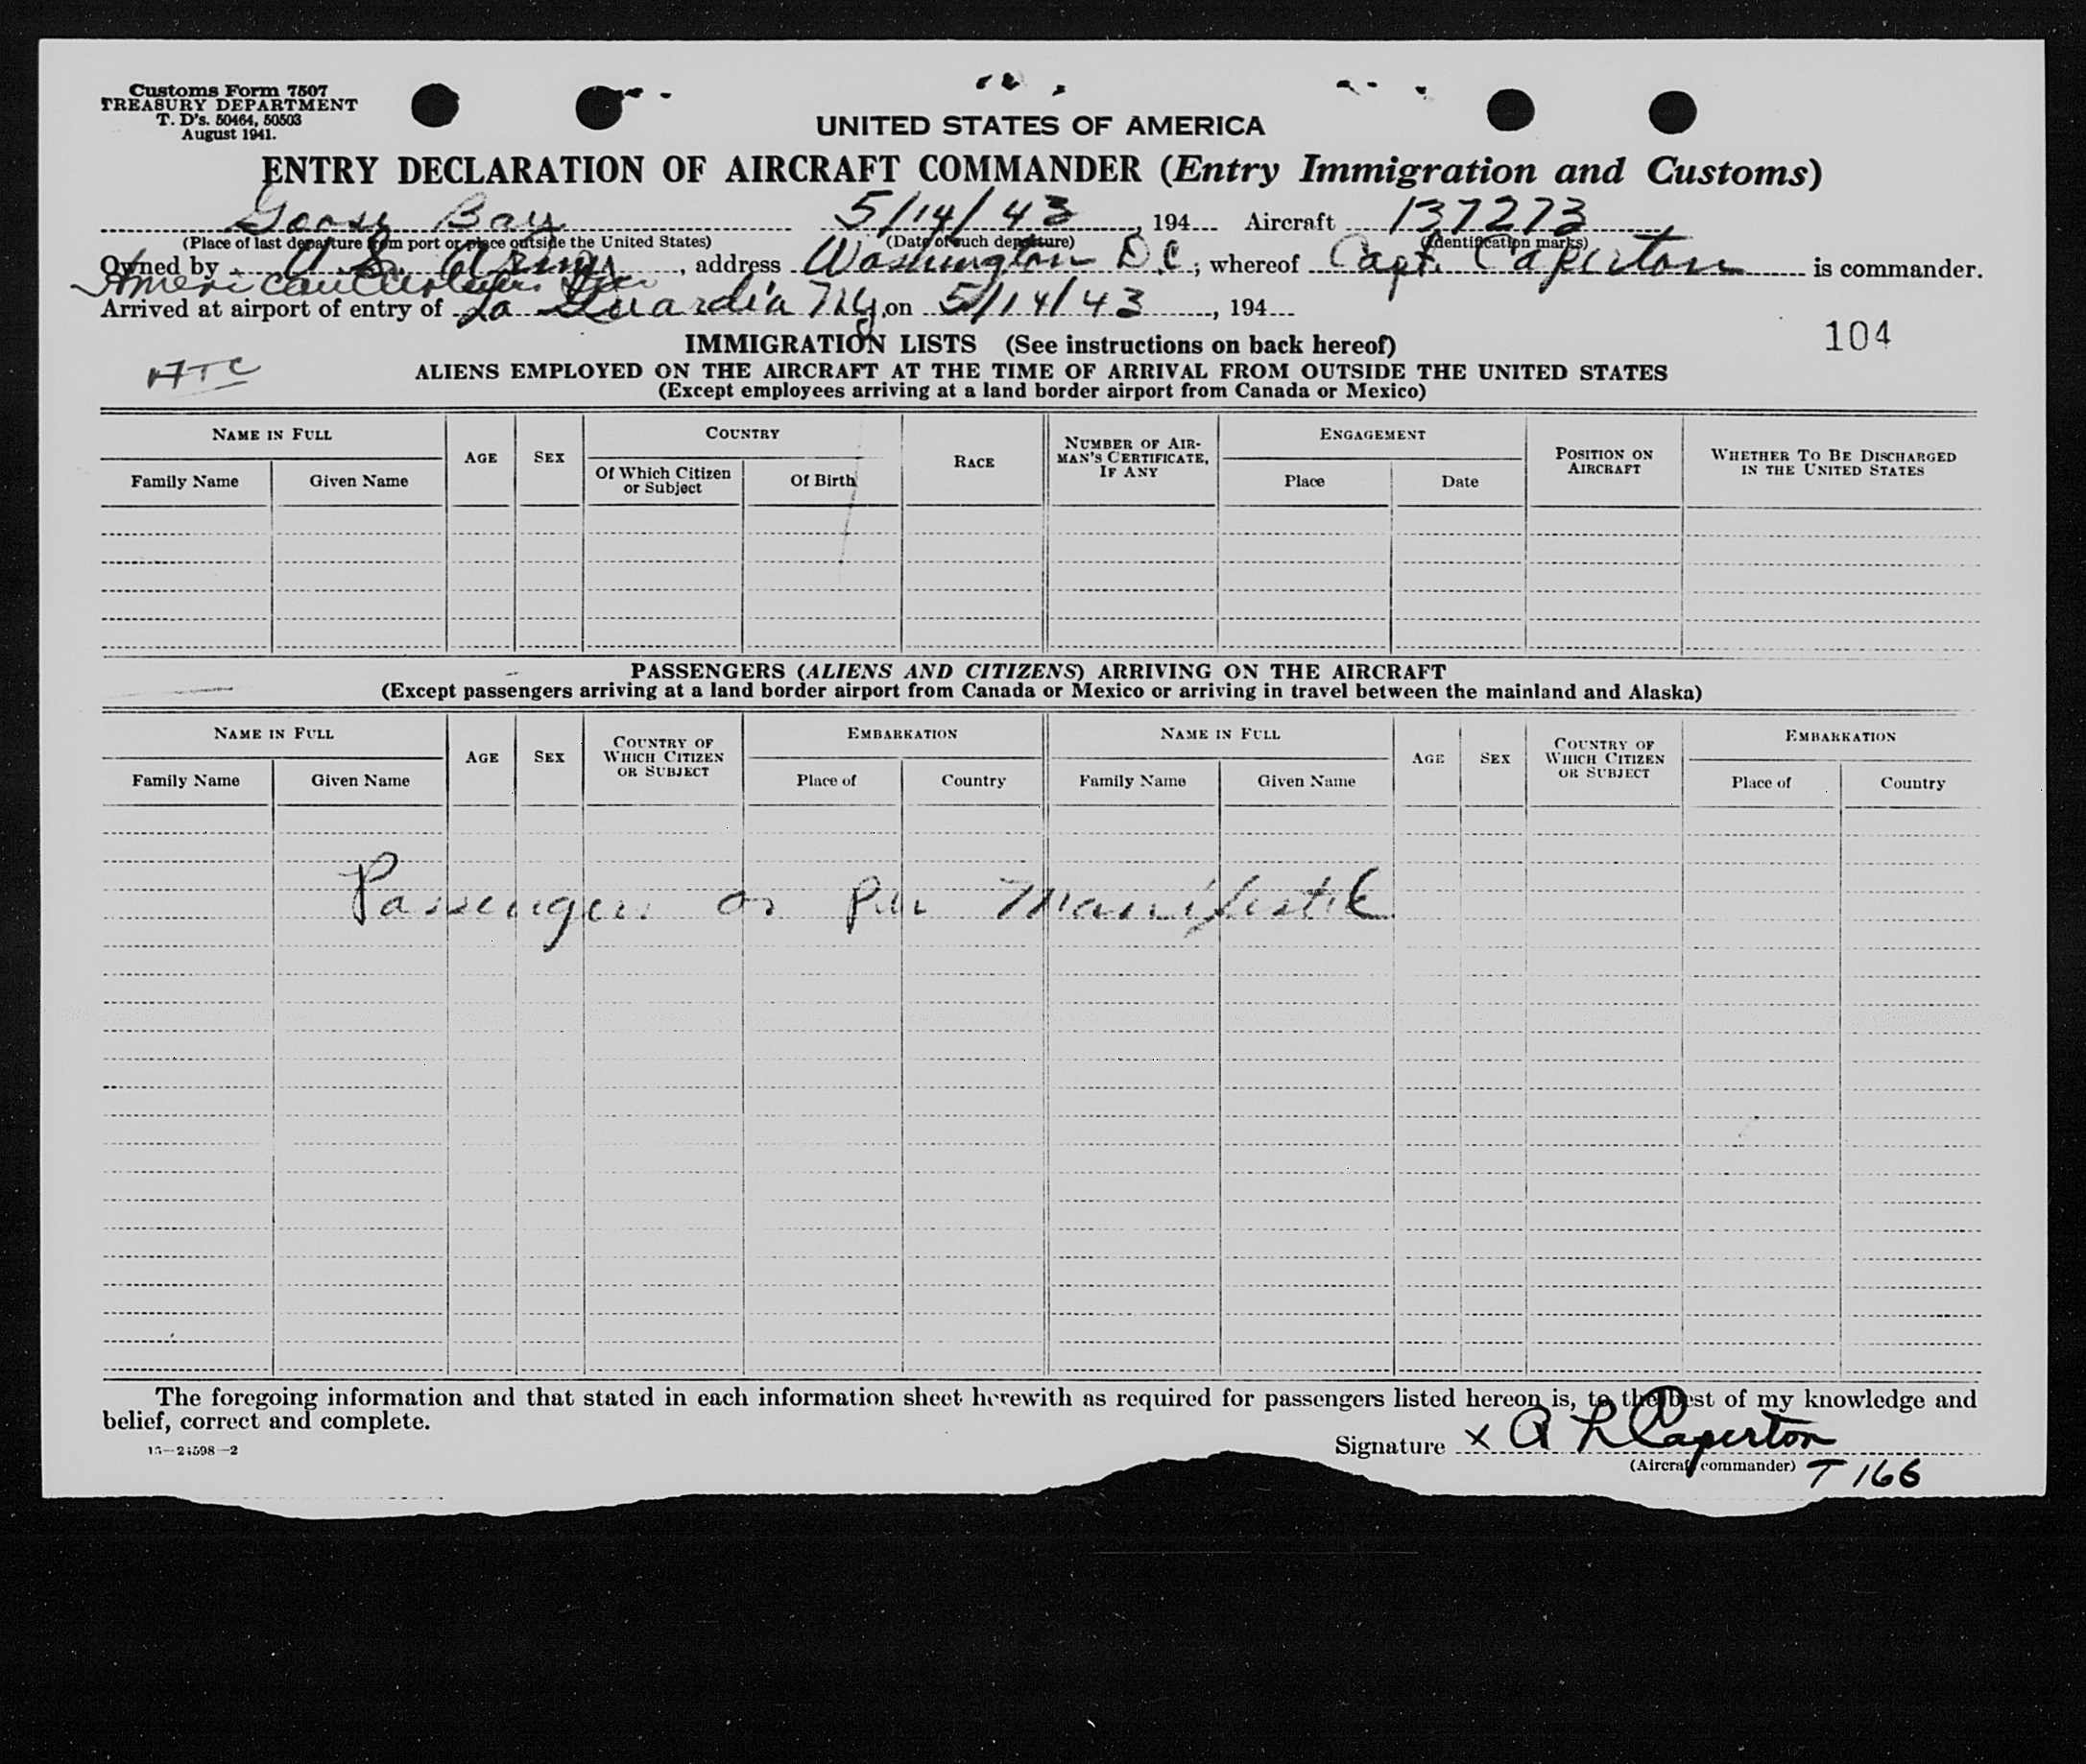 Customs Form 7507
TREASURY DEPARTMENT
T. D's. 50464, 50503
August 1941.
UNITED STATES OF AMERICA
ENTRY DECLARATION OF AIRCRAFT COMMANDER (Entry Immigration and Customs)
Goose Bay 5/14/43, 194 Aircraft 137273
(Place of last departure from port or place outside the United States) (Date of such departure) (Identification marks)
Owned by U.S. Army, address Washington D.C.; whereof Capt. Caperton is commander.
American
Arrived at airport of entry of La Guardia N.Y, on 5/14/43, 194
104
IMMIGRATION LISTS (See instructions on back hereof)
ATC
ALIENS EMPLOYED ON THE AIRCRAFT AT THE TIME OF ARRIVAL FROM OUTSIDE THE UNITED STATES
(Except employees arriving at a land border airport from Canada or Mexico)
NAME IN FULL AGE SEX COUNTRY RACE NUMBER OF AIRMAN'S CERTIFICATE, IF ANY ENGAGEMENT POSITION ON AIRCRAFT WHETHER TO BE DISCHARGED IN THE UNITED STATES
Family Name Given Name Of Which Citizen or Subject Of Birth Place Date
PASSENGERS (ALIENS AND CITIZENS) ARRIVING ON THE AIRCRAFT
(Except passengers arriving at a land border airport from Canada or Mexico or arriving in travel between the mainland and Alaska)
NAME IN FULL AGE SEX COUNTRY OF WHICH CITIZEN OR SUBJECT EMBARKATION NAME IN FULL AGE SEX COUNTRY OF WHICH CITIZEN OR SUBJECT EMBARKATION
Family Name Given Name Place of Country Family Name Given Name Place of Country
Passengers as per
The foregoing information and that stated in each information sheet herewith as required for passengers listed hereon is, to the best of my knowledge and
belief, correct and complete.
Signature x A L Caperton
(Aircraft commander) T 166
16—24598—2